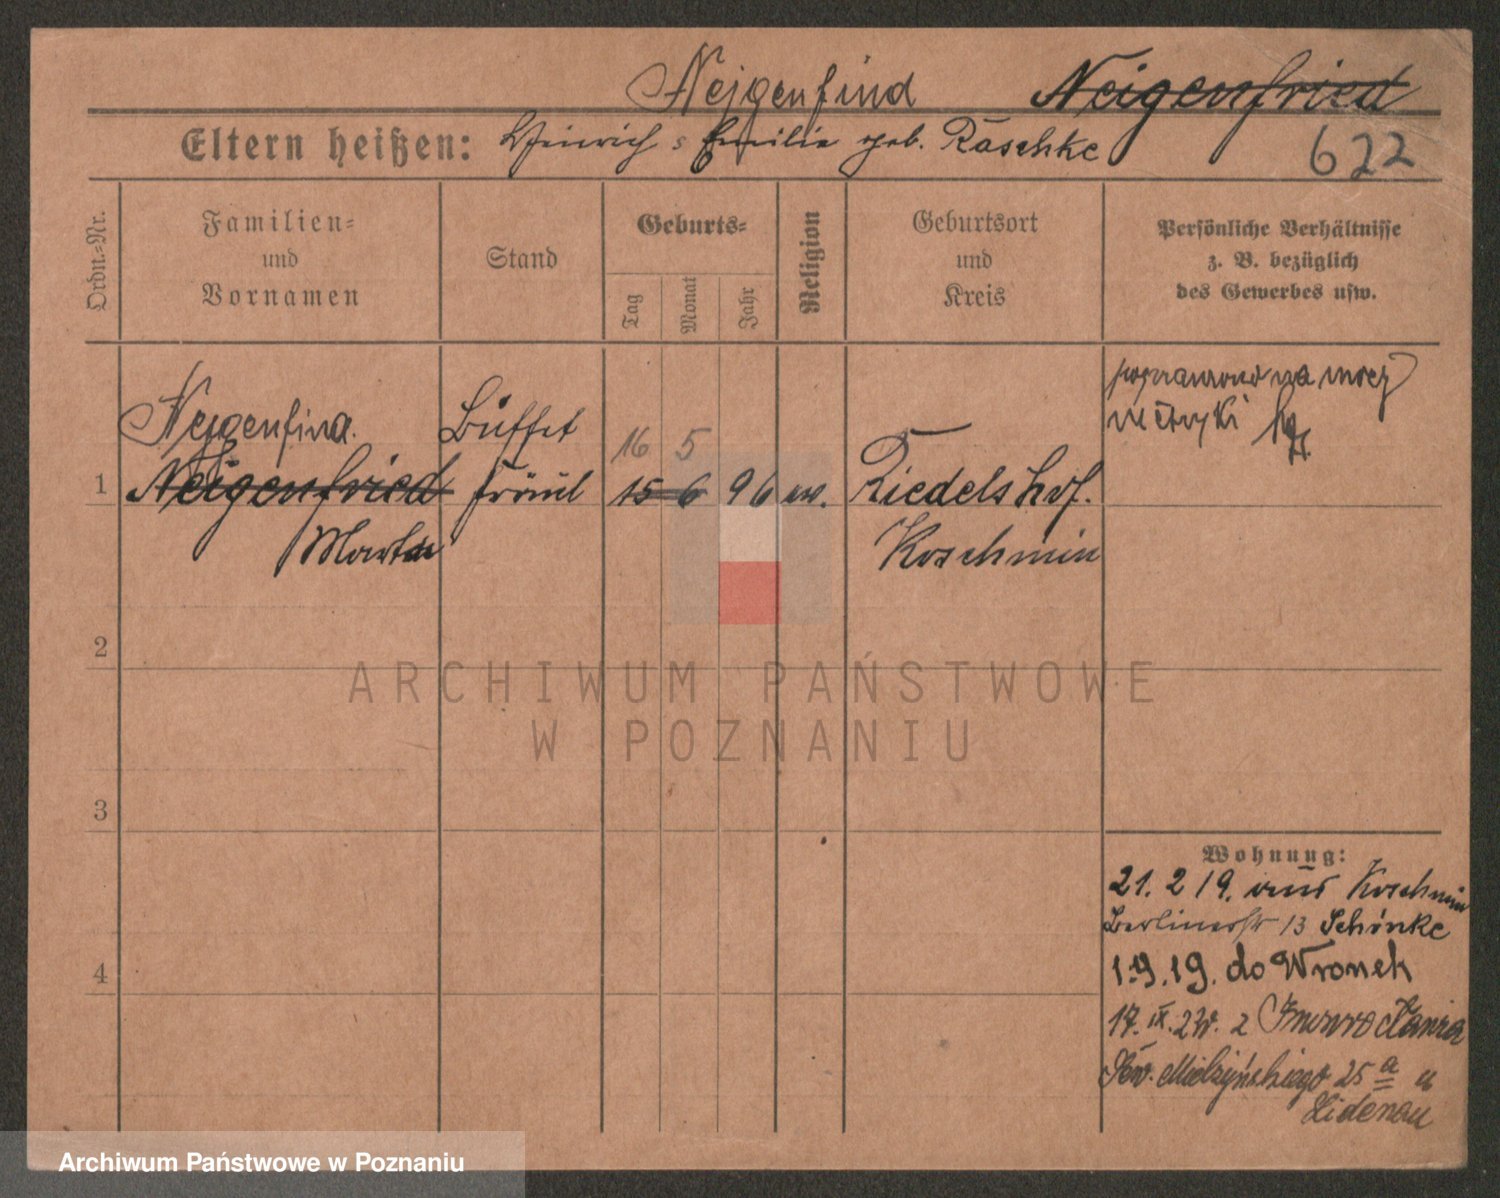 Nejgenfind Neigenfried
Eltern heißen: Heinrich u Emilie geb. Räschke
622
Ordn.=Nr.
Familien=
und
Vornamen
Stand
Geburts=
Tag
Monat
Jahr
Religion
Geburtsort
und
Kreis
Persönliche Verhältnisse
z. B. bezüglich
des Gewerbes usw.
poprawiono na mocy
metryki
Nejgenfind. Büffet
16 5
1 Neigenfried Fräul 15 6 96 ev. Riedelshof.
Martha Koschmin
2
ARCHIWUM PAŃSTWOWE
W POZNANIU
3
Wohnung:
21. 2 19. aus Koschmin
Berlinerstr 13 Schönke
4
1.9.19. do Wronek
17. IX. 2 z Inowrocławia
Mielżyńskiego 25 a u
Hidenau
Archiwum Państwowe w Poznaniu